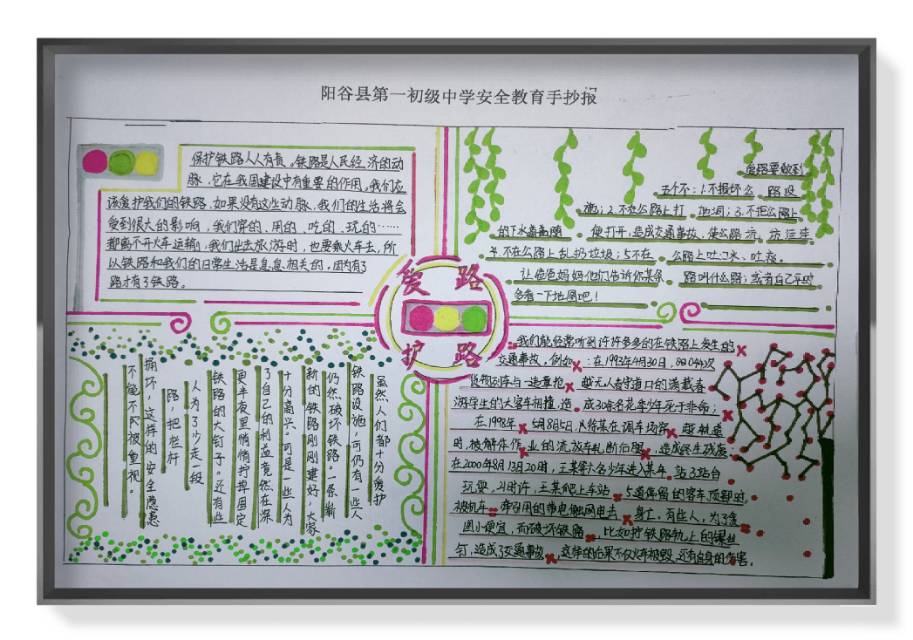 阳谷县第一初级中学安全教育手抄报
保护铁路人人有责。铁路是人民经济的动
脉,它在我国建设中有重要的作用,我们应
该爱护我们的铁路,如果没有这些动脉,我们的生活将会
受到很大的影响,我们穿的、用的、吃的、玩的……
都离不开火车运输;我们出去旅游时,也要乘火车去,所
以铁路和我们的日常生活是息息相关的,因为有了
路才有了铁路。
爱路要做到
五个不:1.不损坏公路设
施;2.不在公路上打 ;3.不把公路上
的下水 打开,造成交通事故,使公路
4.不在公路上乱扔垃圾;5.不在公路上吐口水、吐痰。
让爸爸妈妈他们告诉你某条路叫什么路;或者自己平时
多看一下地图吧!
爱路
护路
虽然人们都十分爱护
铁路设施,可仍有一些人
仍然破坏铁路。一条崭
新的铁路刚刚建好,大家
十分高兴,可是一些人为
了自己的利益竟然在深
更半夜里悄悄拧掉固定
铁路的大钉子。还有些
人为了少走一段
路,把栏杆
损坏,这样的安全隐患
不能不被重视。
我们能经常听到许许多多的在铁路上发生的
交通事故,例如:在1993年4月30日,
货物列车与一造意抢越无人看守道口的满载春
游学生的大客车相撞,造成30余名花季少年死于非命。
在1998年8月5日,K 某在调车场穿越轨道
时,被解体作业的流放车轧断右腿,造成终生残疾。
在2000年8月13日20时,王某等六名少年进入某车站3站台
玩耍,21时许,王某爬上车站5道停留的客车顶部时,
被机车牵引用的带电接触网电击身亡。有些人,为了贪
图小便宜,而破坏铁路,比如拧铁路轨上的螺丝
钉,造成了交通事故,这样的后果不仅火车损毁,还有自身的伤害。